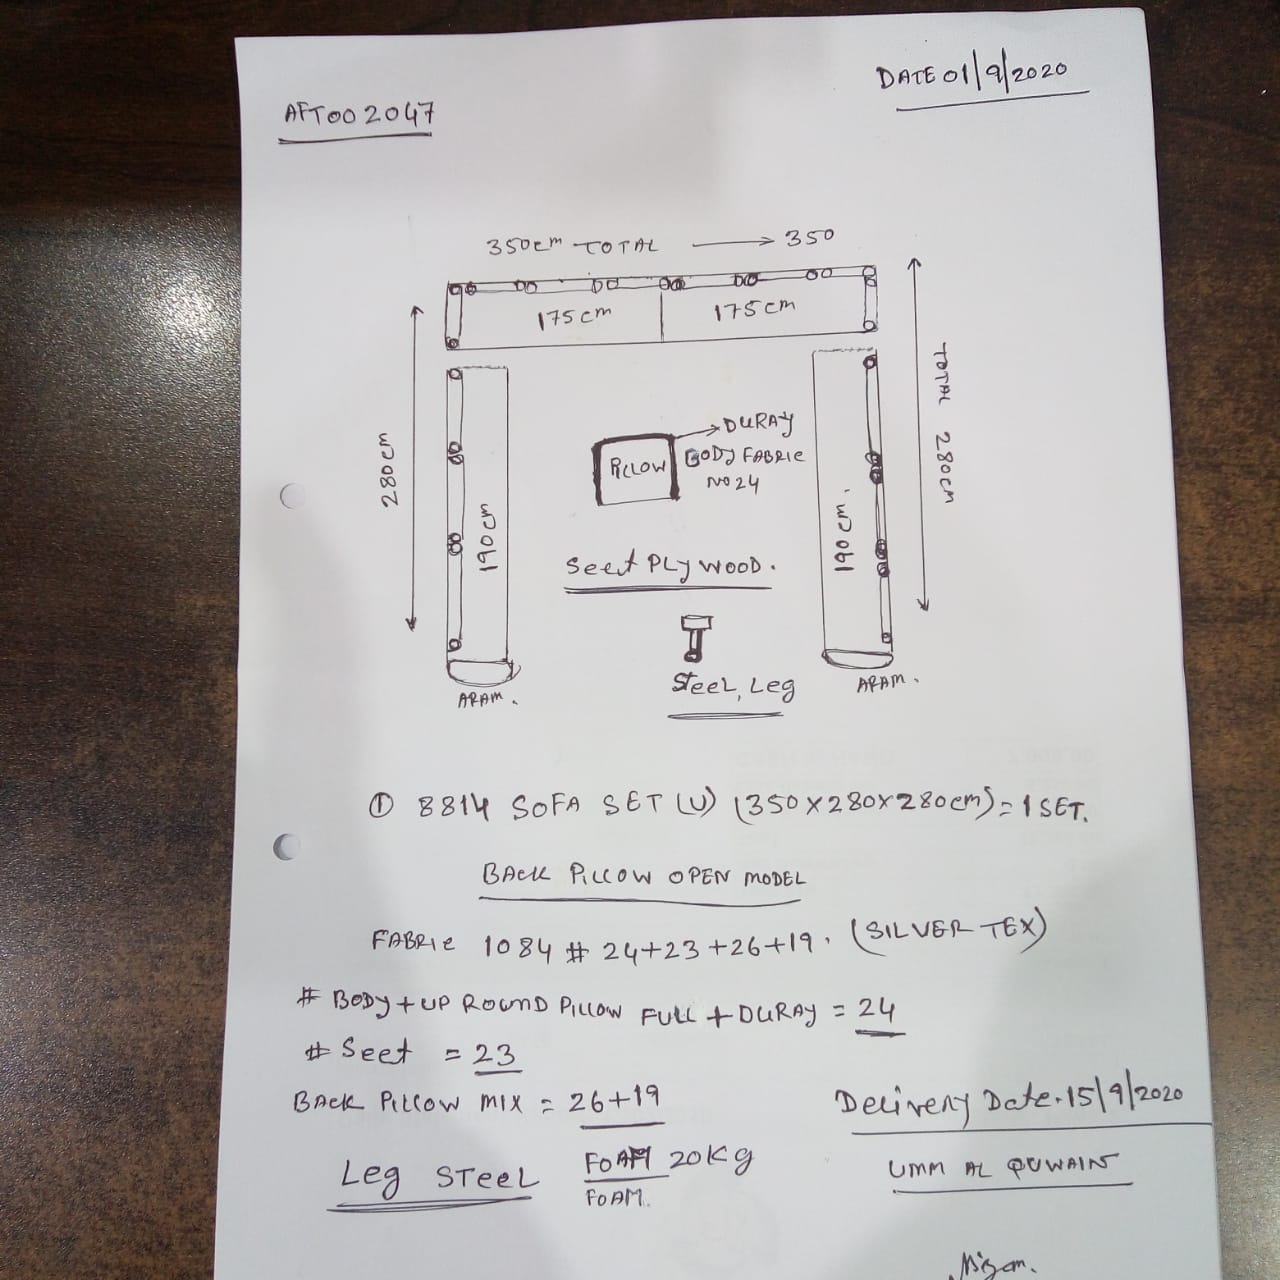 AFT002047
DATE 01/9/2020
350cm TOTAL → 350
175cm
175cm
280cm
190cm
PILLOW
DURAY
BODY FABRIE
NO 24
Seet PLYWOOD.
STeeL Leg
190cm.
TOTAL 280cm
ARAM.
ARAM.
① 8814 SOFA SET (U) (350X280X280cm) = 1 SET.
BACK PILLOW OPEN MODEL
FABRIE 1084 # 24+23+26+19. (SILVER TEX)
# BODY + UP ROUND PILLOW FULL + DURAY = 24
# Seet = 23
BACK PILLOW MIX = 26+19
Delivery Date. 15/9/2020
Leg STeeL
FOAM 20Kg
FOAM.
UMM AL QUWAIN